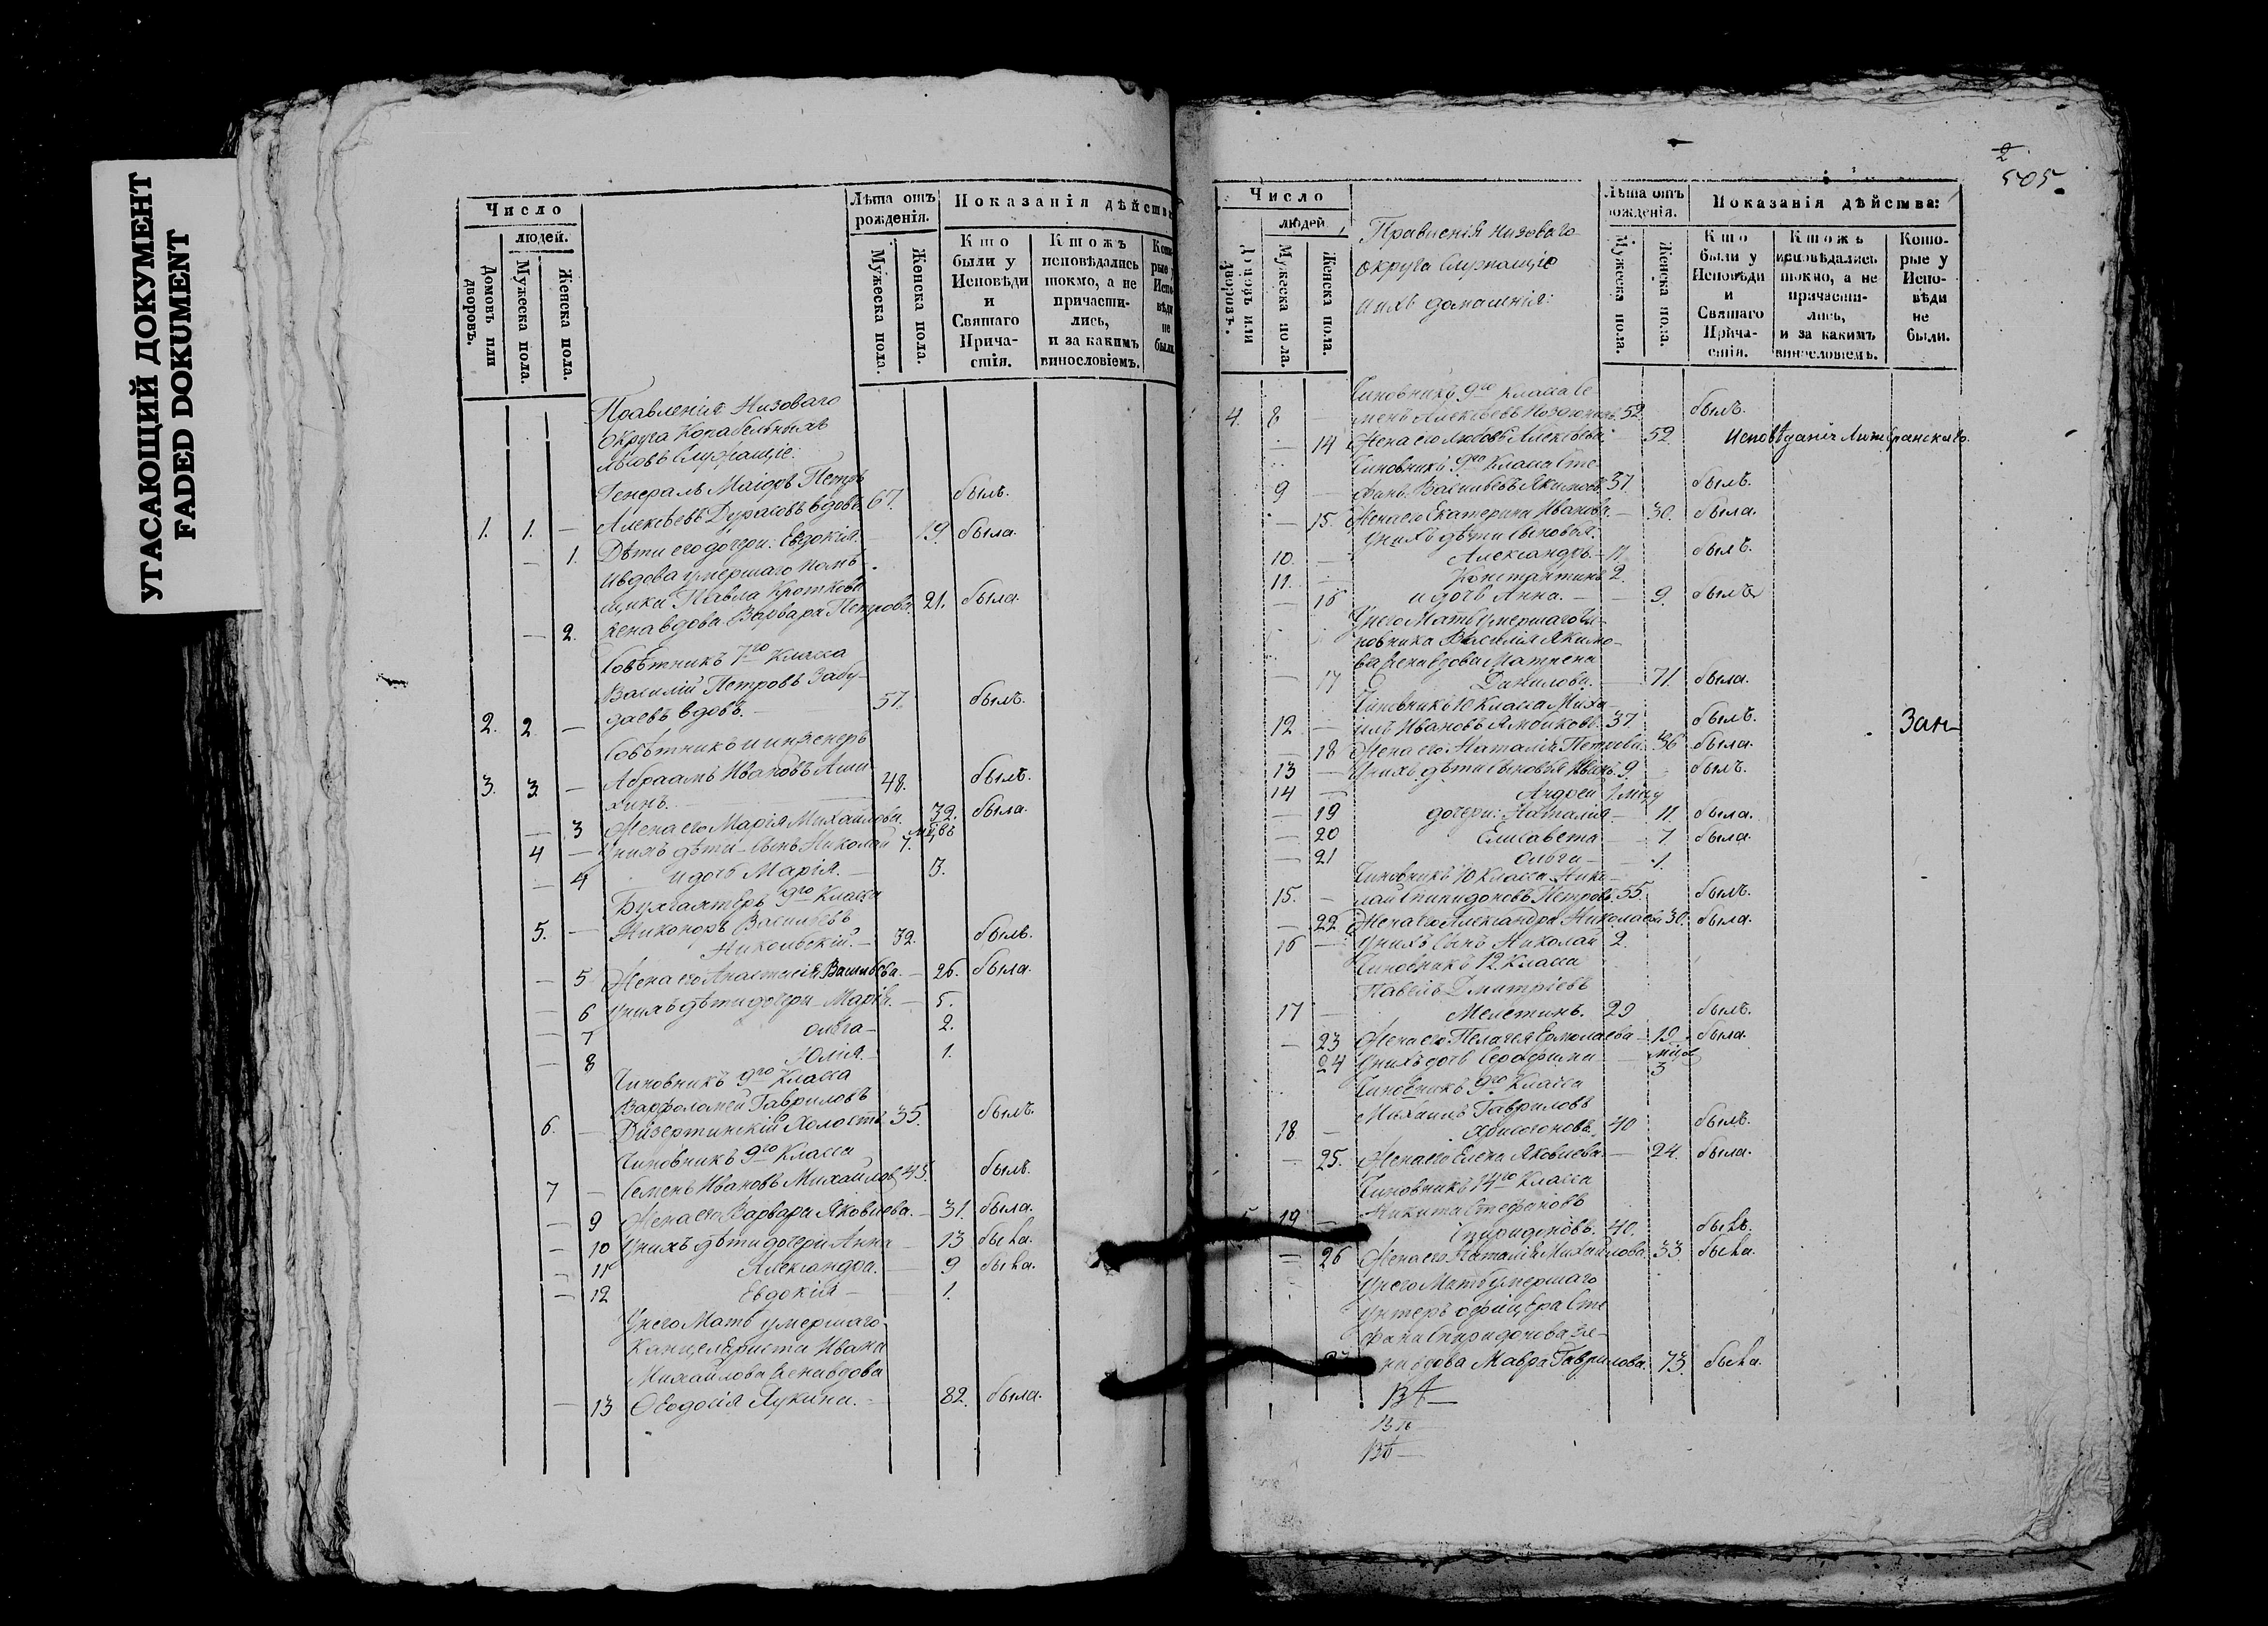 УТАСАЮЩИЙ ДОКУМЕНТ
FADED DOKUMENT
Число
людей.
Домовъ или дворовъ.
Мужеска пола.
Женска пола.
Лѣта отъ рожденія.
Мужеска пола.
Женска пола.
Показанія дѣйства
Кто были у Исповѣди и Святаго Причастія.
Ктожъ исповѣдались токмо, а не причастились, и за какимъ винословіемъ.
Которые у Исповѣди не были
Правленія Низоваго
Округа Корабельныхъ
лѣсовъ Служащіе:
Генералъ Маіоръ Петръ
1. 1. — Алексѣевъ Дурасовъ вдовъ. 67. былъ.
— 1. Дѣти его дочери: Евдокія. 19. была.
Ивдова умершаго помѣ-
щика Павла Кроткова
— 2. жена вдова Варвара Петрова. 21. была.
Совѣтникъ 7го Класса
Василій Петровъ Забу-
2. 2 — даевъ вдовъ. 57. былъ.
Совѣтникъ и инженеръ
3. 3 — Абраамъ Ивановъ 48. былъ.
хинъ.
— 3 Жена его Марія Михайлова. 32. была.
4 — У нихъ дѣти — сынъ Николай 7. мцвъ
— 4 и дочь Марія. — 3.
Бухгалтеръ 9го Класса
5. — Никоноръ Васильевъ
Никольскій. — 32. былъ.
— 5 Жена его Анастасія Васильева. — 26. была.
— 6 У нихъ дѣти дочери — Марія. — 5.
— 7 Ольга — 2.
— 8 Юлія. — 1.
Чиновникъ 9го Класса
Варфоломей Гавриловъ
6. — Дизертинскій Холостъ. 35. былъ.
Чиновникъ 9го Класса
7 — Семенъ Ивановъ Михайловъ 45. былъ.
— 9 Жена его Варвара Яковлева. — 31. была.
— 10 У нихъ дѣти дочери Анна 13 была.
— 11 Александра. 9 была.
— 12 Евдокія — 1.
У него Мать умершаго
Канцеляриста Ивана
Михайлова жена вдова
— 13 Ѳеодосія Лукина. — 82. была
2
505.
Число
людей
Домовъ или дворовъ.
Мужеска пола.
Женска пола.
Правленія низоваго
округа Служащіе
и ихъ домашнія:
Лѣта отъ рожденія.
Мужеска пола.
Женска пола.
Показанія дѣйства:
Кто были у Исповѣди и Святаго Причастія.
Ктожъ исповѣдались токмо, а не причастились, и за какимъ винословіемъ.
Которые у Исповѣди не были.
Чиновникъ 9го Класса Се-
4. 8 — менъ Алексѣевъ 52 былъ.
— 14 Жена его Любовь Алексѣева — 52. Исповѣданія Лютеранскаго.
Чиновникъ 9го Класса Сте-
9 — фанъ Васильевъ Якимовъ. 37. былъ.
— 15. Жена его Екатерина Иванова. — 30. была.
У нихъ дѣти сыновья:
10. — Александръ. — 17 былъ.
11. — Константинъ 2.
— 16 и дочь Анна. — 9. была
У него Мать умершаго Чи-
новника Василія Якимо-
ва жена вдова Матрена
— 17 Данилова. — 71. была.
Чиновникъ 10 Класса Миха-
12 — илъ Ивановъ 37 былъ.
— 18 Жена его Наталія Петрова. 36 была. Зан
13 — У нихъ дѣти сыновья Иванъ. 9. былъ.
14 — Андрей 1 мцу
— 19 дочери: Наталія — 11. была.
— 20 Елисавета — 7 была
— 21 Ольга — 1.
Чиновникъ 10 Класса Нико-
15. — лай Спиридоновъ Петровъ. 55. былъ.
— 22 Жена его Александра Николаева 30. была.
16 — У нихъ сынъ Николай 2.
Чиновникъ 12 Класса
Павелъ Дмитріевъ
17 — Мелетинъ. 29 былъ.
— 23 Жена его Пелагея Ермолаева — 19. была.
24 У нихъ дочь Серафима — мцв 3
Чиновникъ 9го Класса
Михаилъ Гавриловъ
18 — Хрисогоновъ. 40 былъ.
— 25. Жена его Елена Яковлева. — 24. была.
Чиновникъ 14го Класса
19 — Никита Стефановъ
Спиридоновъ. 40. былъ.
— 26 Жена его Наталія Михайлова. 33. была.
У него Мать умершаго
Унтеръ офицера Сте-
фана Спиридонова же-
на вдова Мавра Гаврилова. 73. была.